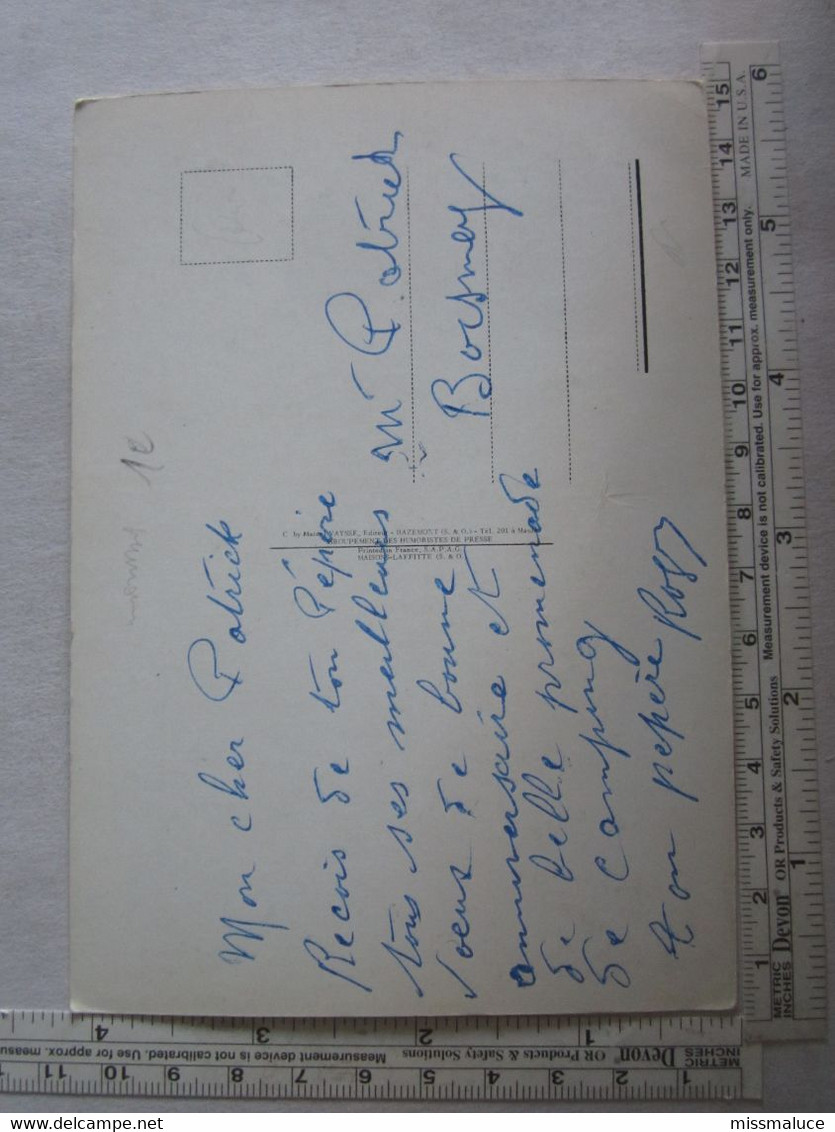 1e
Mon cher Patrick
Recois de ton Pépère
tous ses meilleurs
voeux de bonne
anniversaire et
de belle promenade
de camping
ton pepère Roger
Mr Patrick
C by
Editeur - BAZEMONT (S. & O.) - Tél. 201 à
GROUPEMENT DES HUMORISTES DE PRESSE
Printed in France, S.A.P.A.G.
MAISONS-LAFFITTE (S. & O.)
MADE IN U.S.A.
METRIC
INCHES Devon® OR Products & Safety Solutions Measurement device is not calibrated. Use for approx. measurement only.
1 2 3 4 5 6 7 8 9 10 11 12 13 14 15
1 2 3 4 5 6
METRIC
INCHES Devon® OR Products & Safety Solutions Measurement device is not calibrated. Use for approx.
1 2 3 4 5 6 7 8 9 10 11
1 2 3 4
delcampe.net
missmaluce